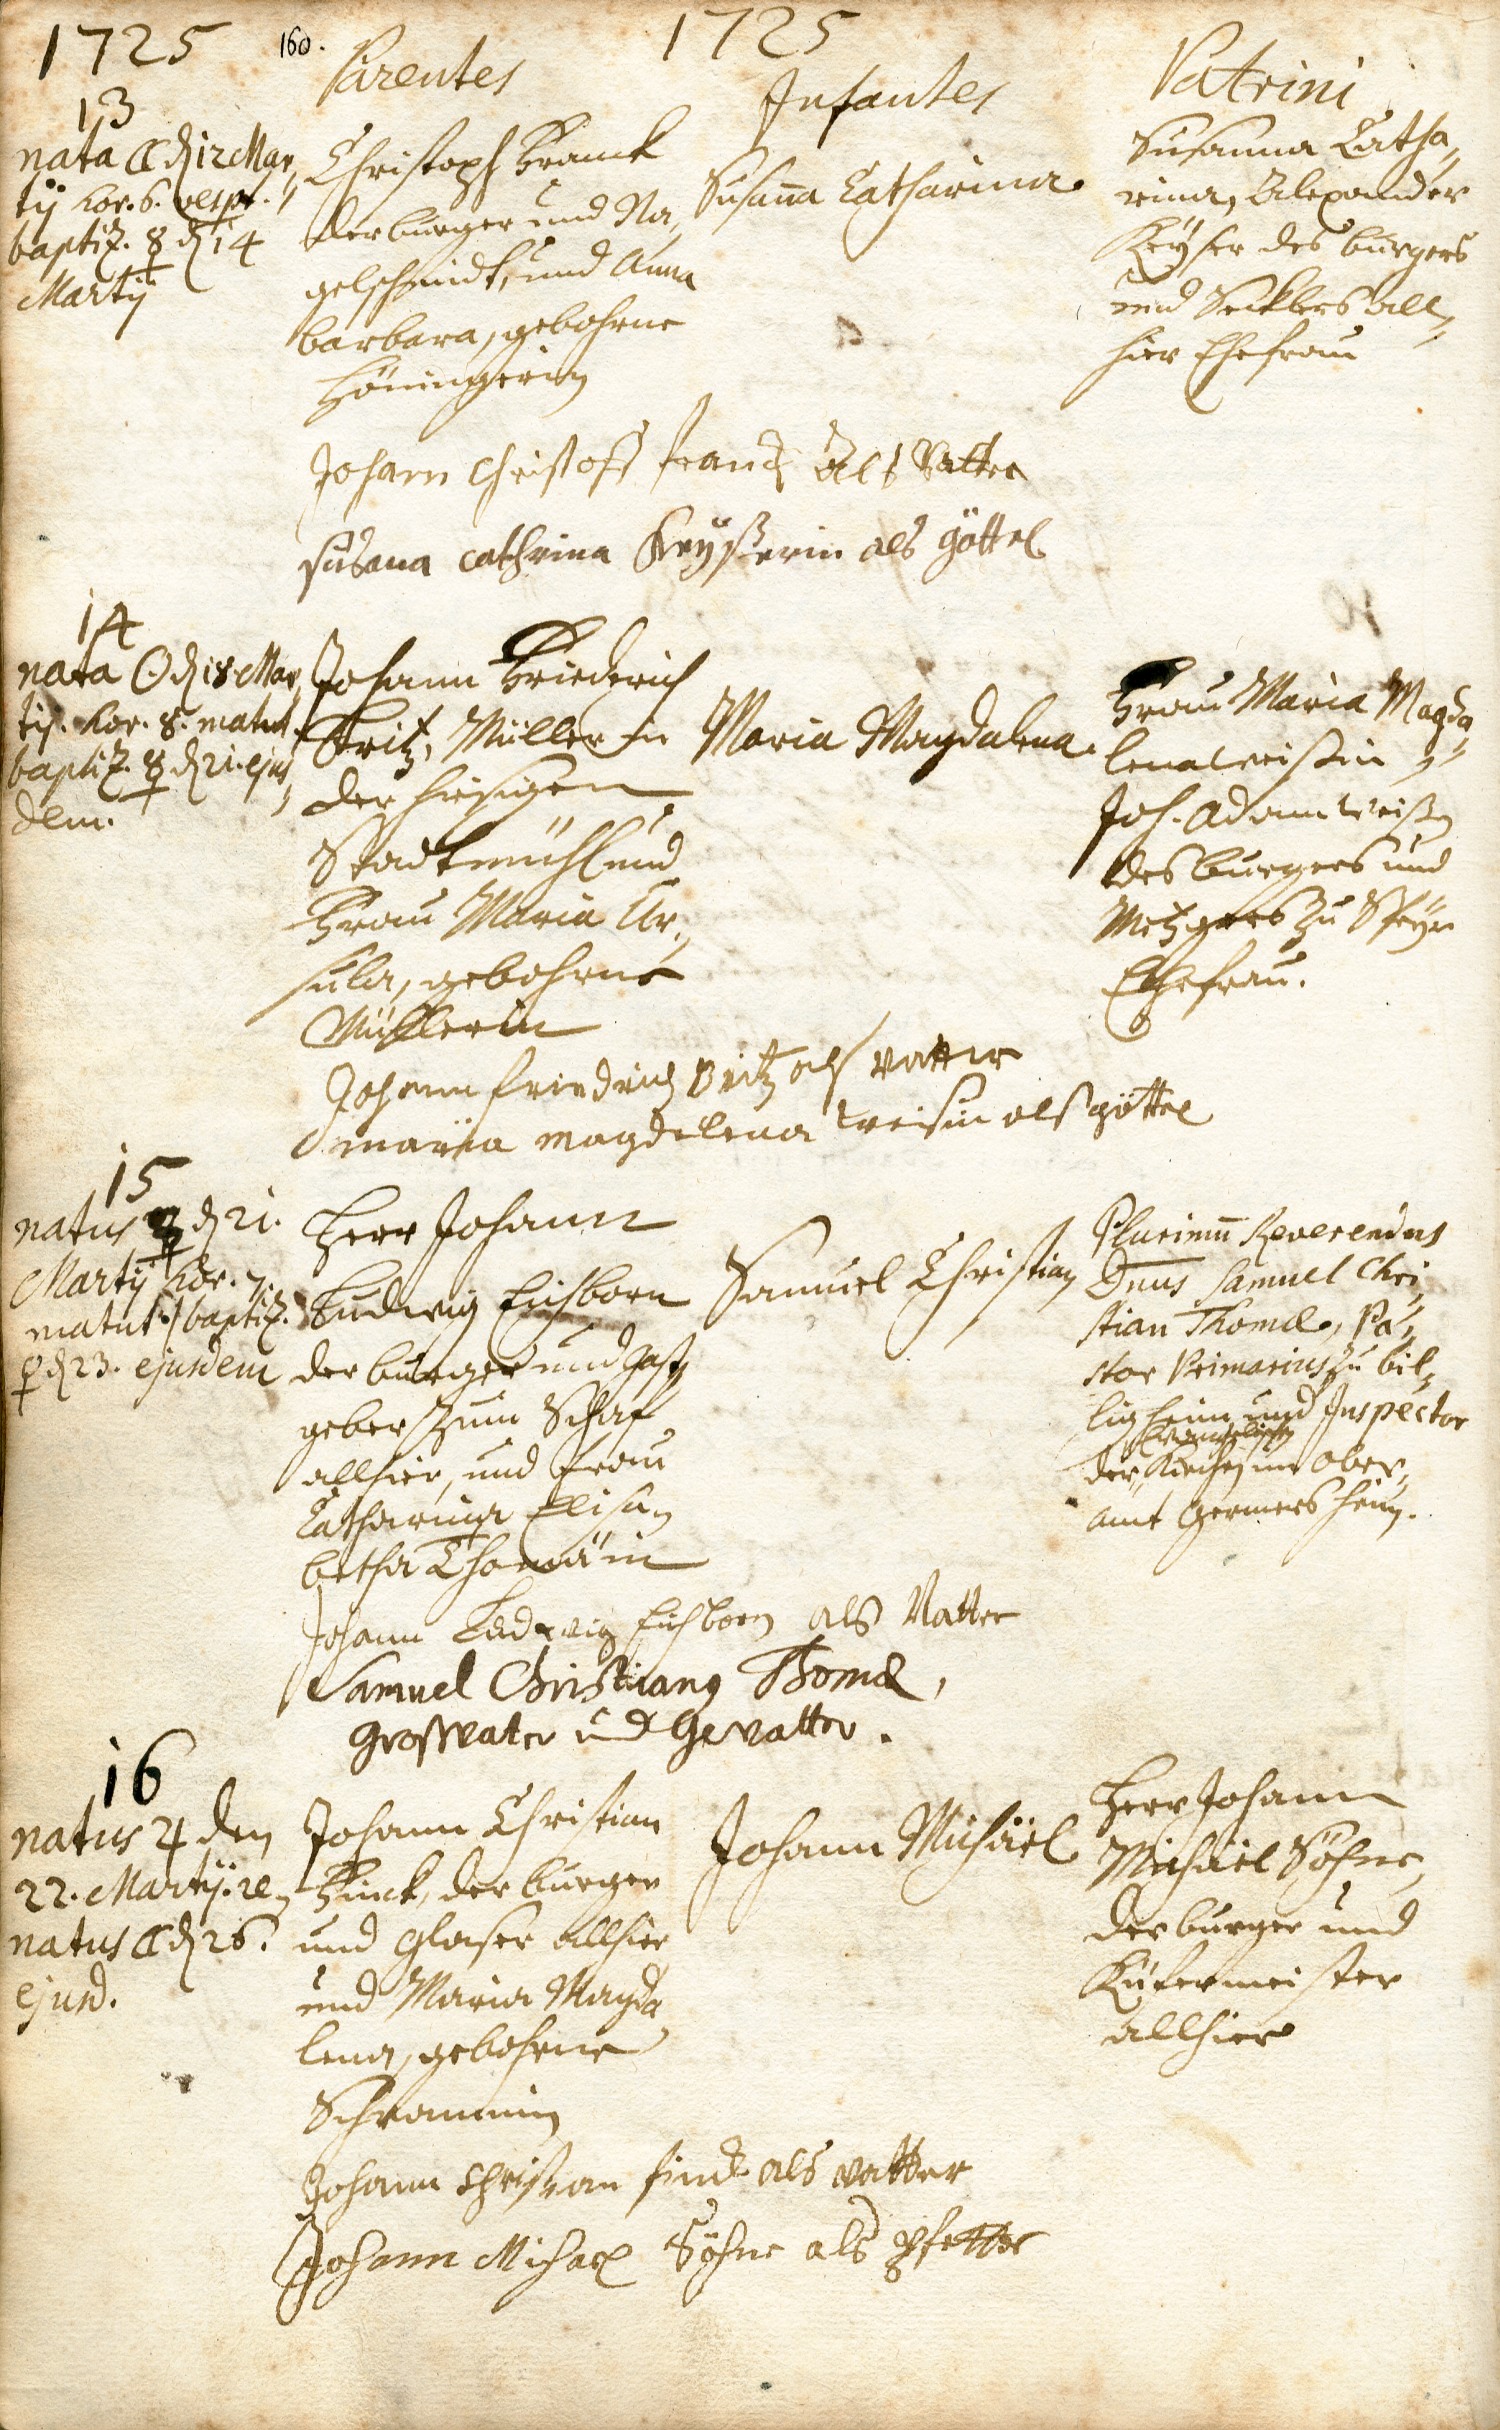 1725
160.
1725
Parentes
Infantes
Patrini
13
nata ☾ d 12 Mar,,
tij hor. 6. vesp.
baptiz. ☿ d 14
Martij
Christoph Franck
der burger und Na,,
gelschmidt, und Anna
barbara, gebohrne
Höningerin
Susanna Catharina.
Susanna Catha,,
rina, Alexander
Keyser des burgers
und Secklers all,,
hier Ehefrau
Johann Christoff Franck Als Vatter
susana cathrina Keyßerin als göttel
14
nata ☉ d 18 Mar,,
tij. hor. 8. matut.
baptiz. ☿ d 21. ejus,,
dem.
Johann Friederich
Britz, Müller in
der hiesigen
Stadtmühl und
Frau Maria Ur,,
sula, gebohrne
Müllerin
Maria Magdalena.
Frau Maria Magda,,
lena Weissin,
Joh. Adam Weißen
des burgers und
Metzgers zu Speyer
Ehefrau.
Johann friedrich Britz als vatter
maria magdelena Weisin als göttel
15
natus ☿ d 21.
Martij hor. 7.
matut. / baptiz.
♀ d 23. ejusdem
Herr Johann
Ludwig Eichborn
der burger und Gast,,
geber zum Schaf
allhier, und Frau
Catharina Elisa,,
betha Thomäin
Samuel Christian
Plurimum Reverendus
Dnus Samuel Chri,,
stian Thomæ, Pa,,
stor Primarius zu bil,,
ligheim und Inspector
Evangelischen
der Kirchen im Ober,,
amt Germersheim.
Johann Ludwig Eichborn als Vatter
Samuel Christiang Thomæ,
Großvater und Gevatter.
16
natus ♃ den
22. Martij. re,,
natus ☾ d 26.
ejusd.
Johann Christian
Finck, der burger
und Glaser allhier
und Maria Magda,,
lena, gebohrne
Schrammin
Johann Michaël
Herr Johann
Michaël Söhne,
der burger und
Küfermeister
allhier
Johann christian finck als vatter
Johann Michael Söhne als Pfetter